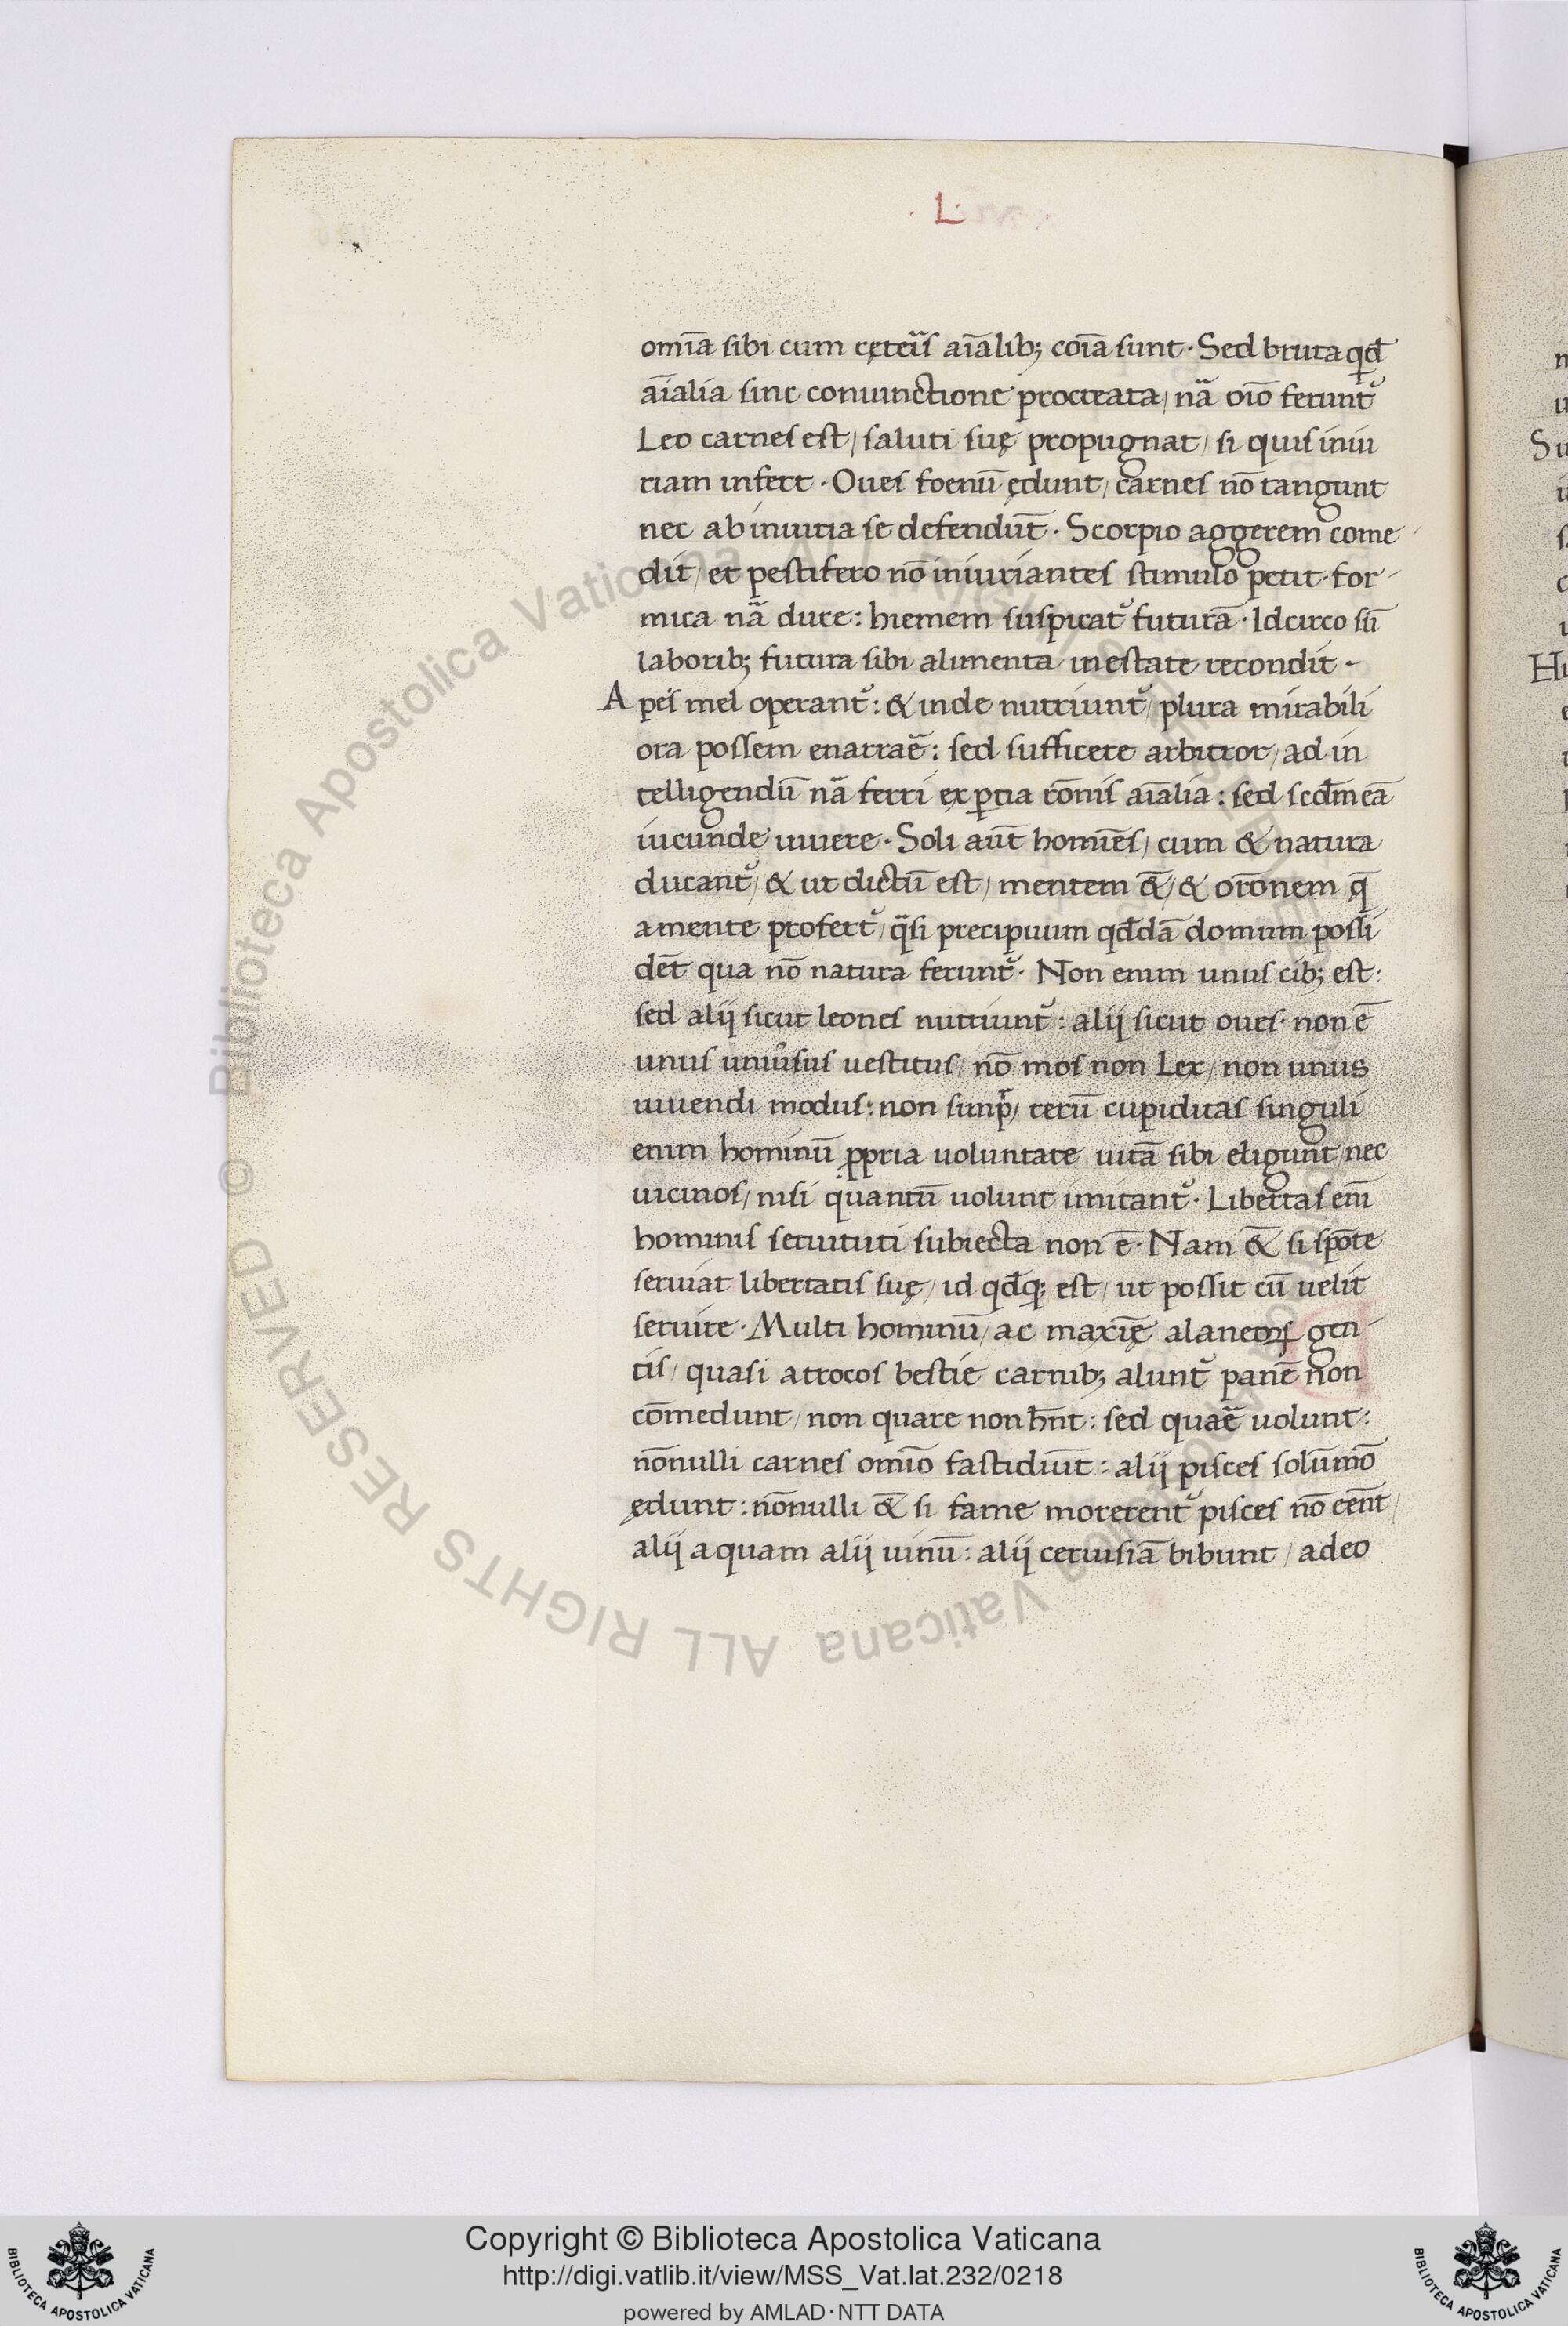 · L ·
omīa sibi cum cętēis aīalib; coīa sunt · Sed bruta qđ
aīalia sine conuinctione procreata / nā oīo ferunt᷑
Leo carnes est / saluti suę propugnat / si quis iniu
riam infert · Oues foenū ędunt / carnes nō tangunt
nec ab iniuria se defendūt · Scorpio aggerem come
dit / et pestifero nō iniuriantes stimulo petit · for-
mica nā duce : hiemem suspicat᷑ futurā · Idcirco sū
laborib; futura sibi alimenta in estate recondit ·
Apes mel operant᷑ : & inde nutriunt᷑ / plura mirabili
ora possem enarrāe : sed sufficere arbitror / ad in
telligendū nā ferri exptia rōnis aīalia : sed scđm eā
iucunde uiuere · Soli aūt homīes / cum & natura
ducant᷑ / & ut dictū est / mentem &̄ / & orōnem q̄
a mente profert᷑ / q̄si precipuum qđdā domum possi
dēt qua nō natura ferunt᷑ · Non enim unus cib; est :
sed alij sicut leones nutriunt᷑ : alij sicut oues · non ē
unus uniu͛sus uestitus / nō mos non Lex / non unus
uiuendi modus : non simp̄r / rerū cupiditas singuli
enim hominū ꝓpria uoluntate uitā sibi eligunt / nec
uicinos / nisi quantū uolunt imitant᷑ · Libertas eīm
hominis seruituti subiecta non ē · Nam &̄ si spōte
seruiat libertatis suę / id qđq; est / ut possit cū uelit
seruire · Multi hominū / ac maxīę alaneoꝝ gen-
tis / quasi atrocos bestie carnib; alunt᷑ panē non
cōmedunt / non quare non hn̄t : sed quāe uolunt :
nōnulli carnes omīo fastidiūt : alij pisces solūmō
ędunt : nōnulli &̄ si fame morerent᷑ pisces nō eēnt /
alij aquam alij uinū : alij ceruisiā bibunt / adeo
© Biblioteca Apostolica Vaticana ALL RIGHTS RESERVED
© Biblioteca Apostolica Vaticana ALL RIGHTS RESERVED
Copyright © Biblioteca Apostolica Vaticana
http://digi.vatlib.it/view/MSS_Vat.lat.232/0218
powered by AMLAD·NTT DATA
BIBLIOTECA APOSTOLICA VATICANA
BIBLIOTECA APOSTOLICA VATICANA